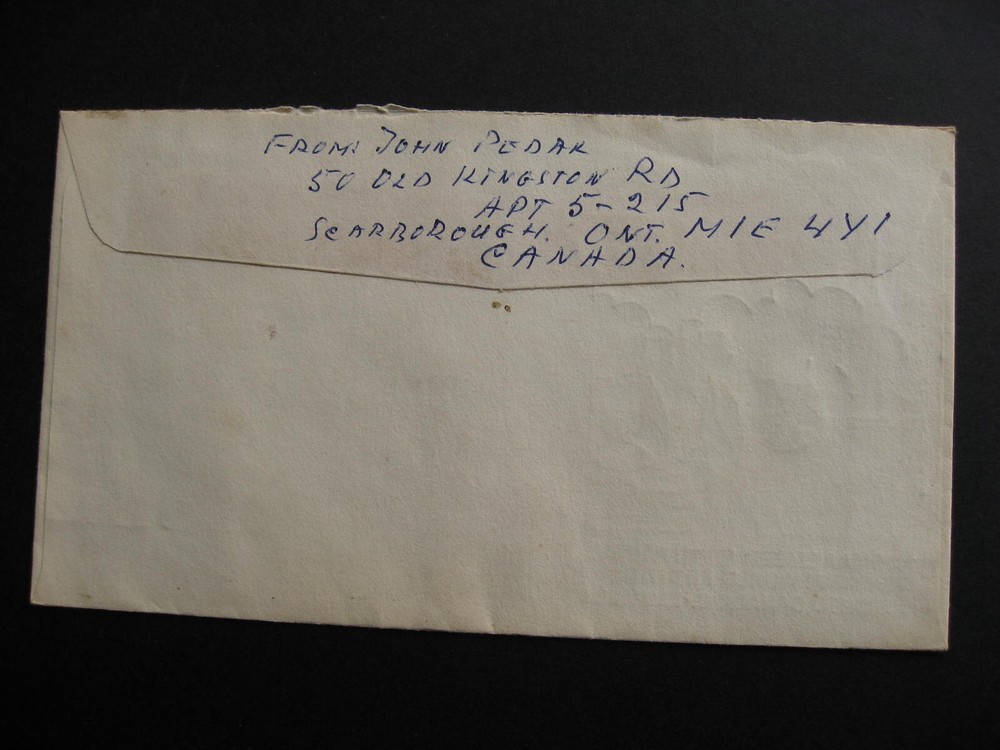 FROM: JOHN PEDAK
50 OLD KINGSTON RD
APT 5-215
SCARBOROUGH. ONT. M1E 4Y1
CANADA.